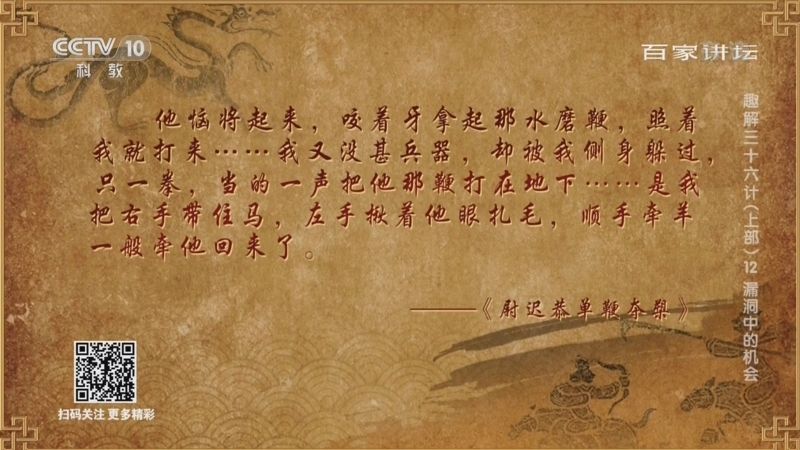 CCTV 10
科教
百家讲坛
他恼将起来，咬着牙拿起那水磨鞭，照着
我就打来……我又没甚兵器，却被我侧身躲过，
只一拳，当的一声把他那鞭打在地下……是我
把右手带住马，左手揪着他眼扎毛，顺手牵羊
一般牵他回来了。
——《尉迟恭单鞭夺槊》
趣解三十六计（上部）12 漏洞中的机会
扫码关注 更多精彩